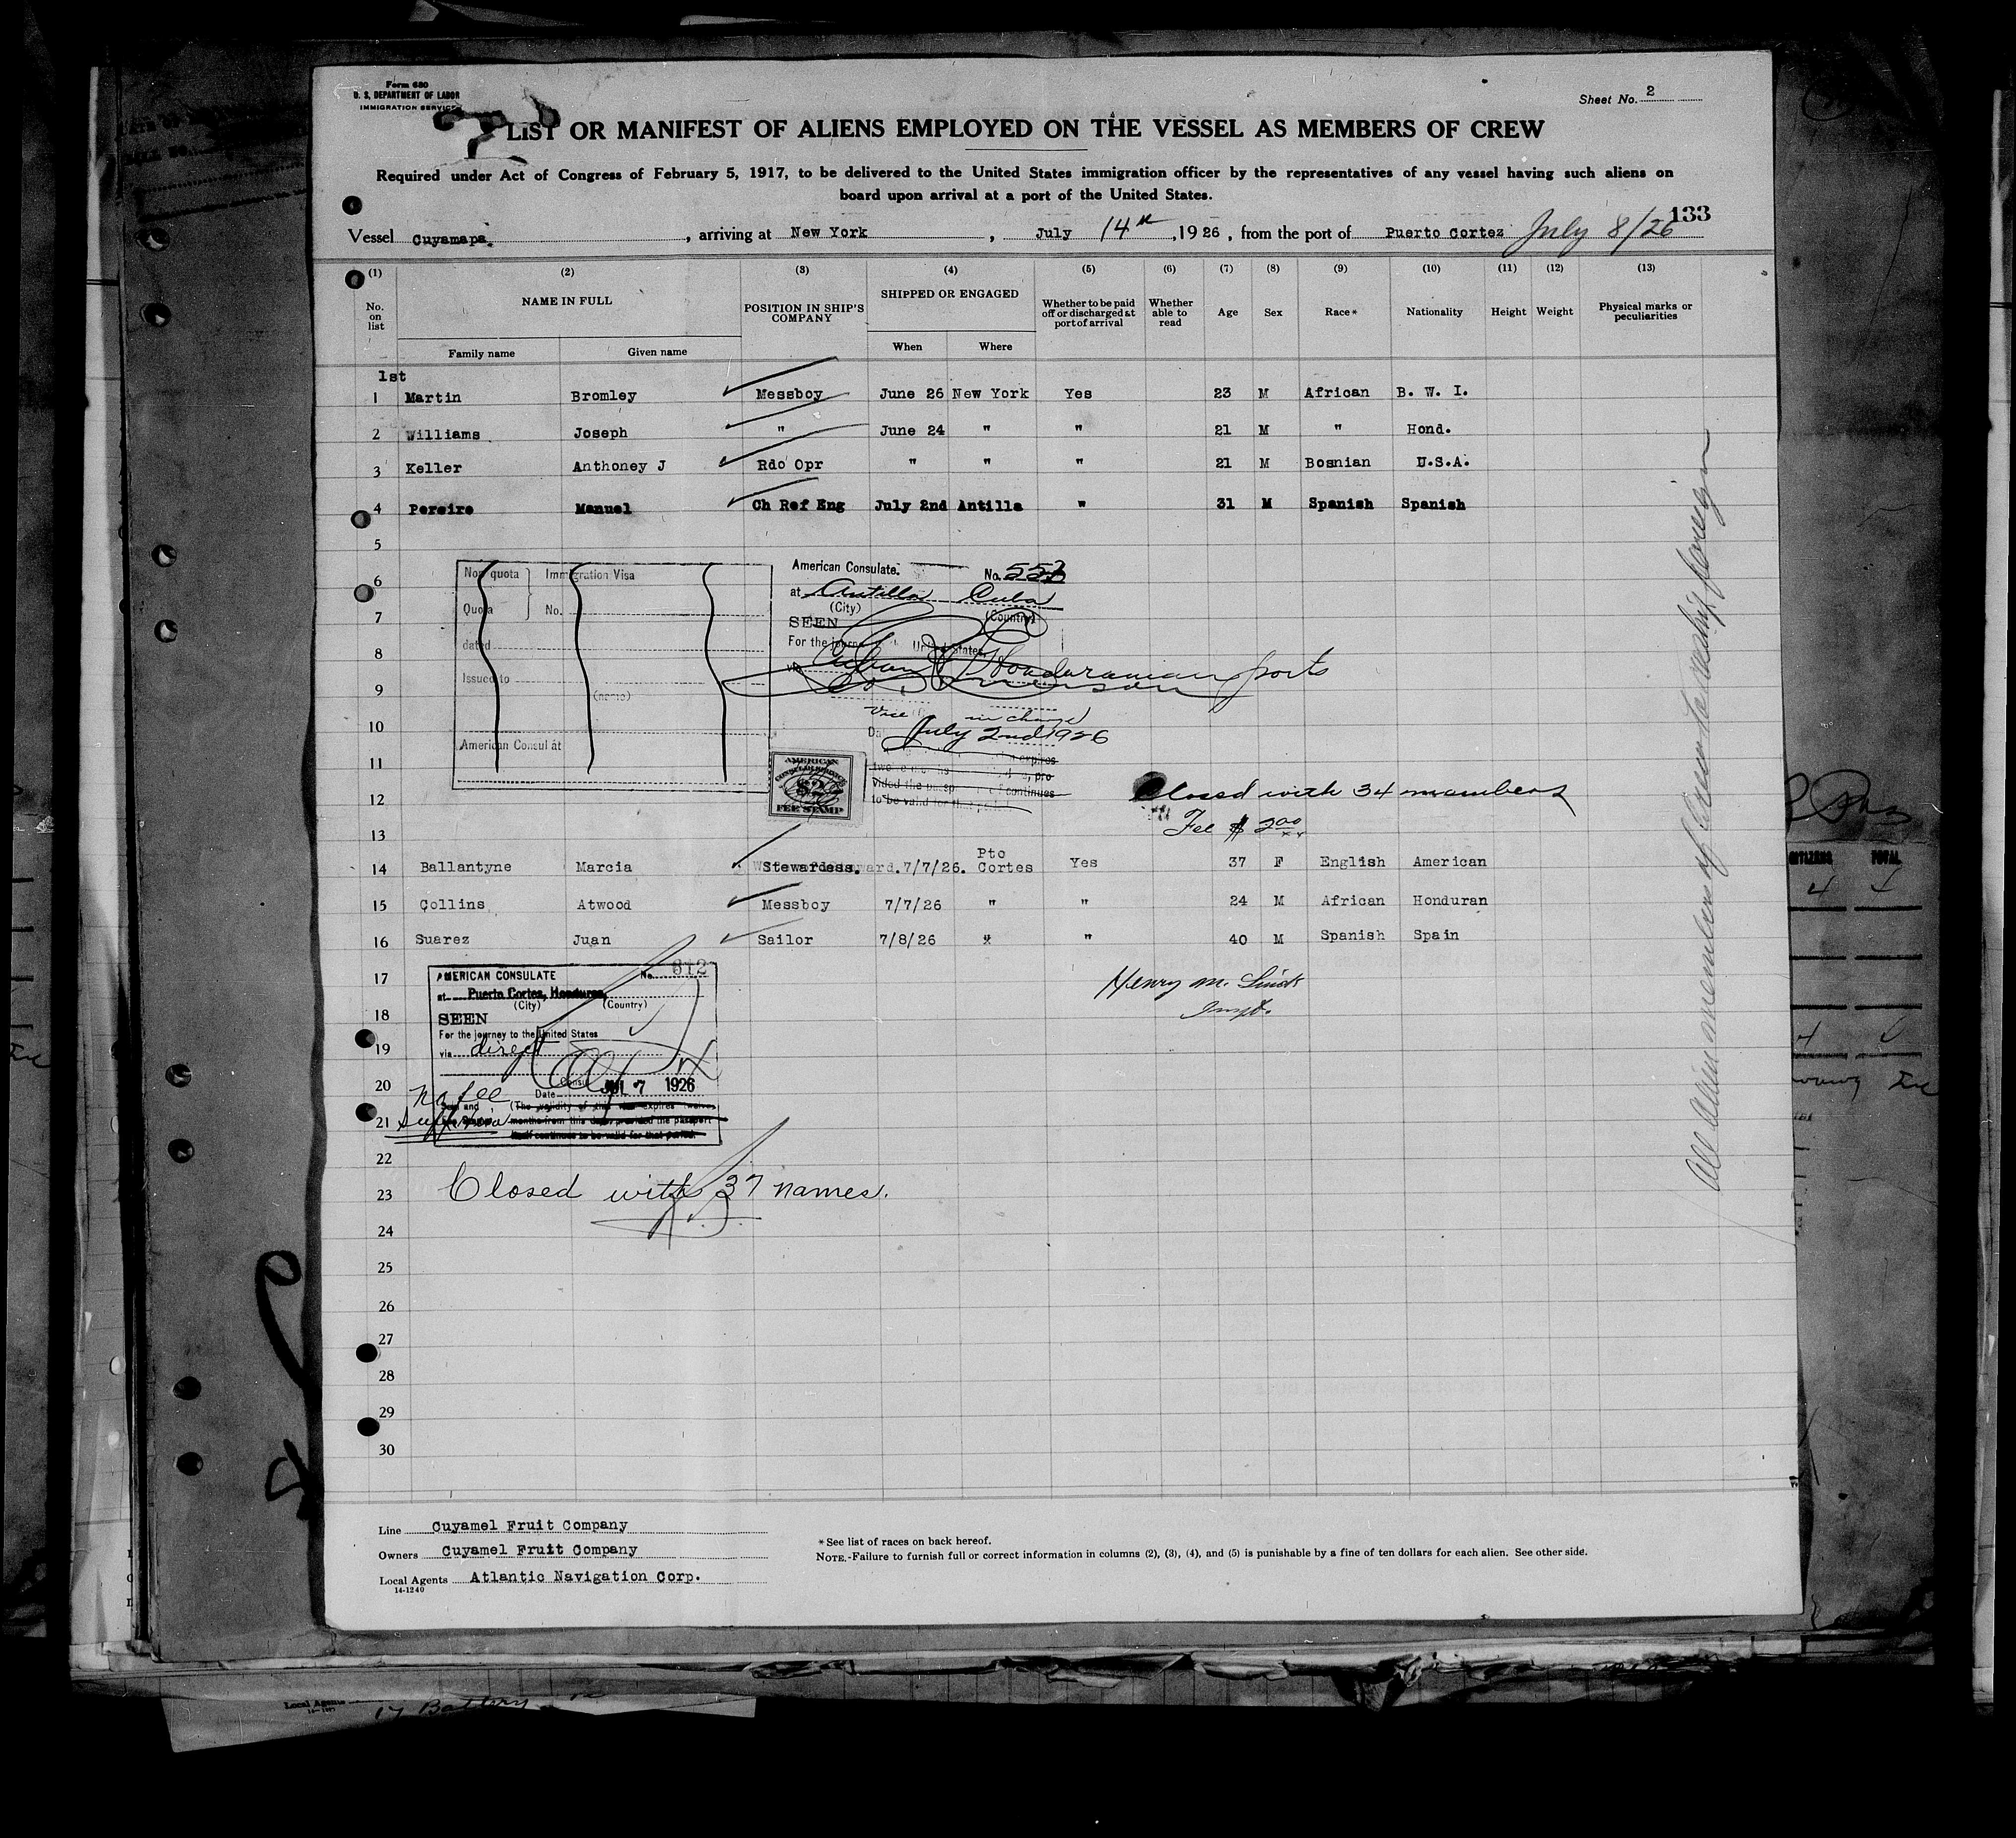 Form 680
U. S. DEPARTMENT OF LABOR
IMMIGRATION SERVICE
Sheet No. 2
LIST OR MANIFEST OF ALIENS EMPLOYED ON THE VESSEL AS MEMBERS OF CREW
Required under Act of Congress of February 5, 1917, to be delivered to the United States immigration officer by the representatives of any vessel having such aliens on
board upon arrival at a port of the United States.
133
Vessel Cuyamapa, arriving at New York, July 14th, 1926, from the port of Puerto Cortez July 8/26
(1) (2) (3) (4) (5) (6) (7) (8) (9) (10) (11) (12) (13)
No. on list NAME IN FULL POSITION IN SHIP'S COMPANY SHIPPED OR ENGAGED Whether to be paid off or discharged at port of arrival Whether able to read Age Sex Race* Nationality Height Weight Physical marks or peculiarities
Family name Given name When Where
1st
1 Martin Bromley Messboy June 26 New York Yes 23 M African B. W. I.
2 Williams Joseph " June 24 " " 21 M " Hond.
3 Keller Anthoney J Rdo Opr " " " 21 M Bosnian U.S.A.
4 Pereira Manuel Ch Ref Eng July 2nd Antilla " 31 M Spanish Spanish
5
6
7
8
9
10
11
12
13
Non quota Immigration Visa
Quota No.
dated
Issued to
(name)
American Consul at
American Consulate. No. 553
at Antilla Cuba
(City) (Country)
SEEN
For the journey United States
via Cuban & Honduranian ports
Vice in charge
Date July 2nd 1926
expires
pro
vided the passp continues
to be valid for
AMERICAN
$2
FEE STAMP
Closed with 34 members
Fee $ 2.00
14 Ballantyne Marcia Stewardess. 7/7/26. Pto Cortes Yes 37 F English American
15 Collins Atwood Messboy 7/7/26 " " 24 M African Honduran
16 Suarez Juan Sailor 7/8/26 " " 40 M Spanish Spain
17
18
19
20
21
22
23
24
25
26
27
28
29
30
AMERICAN CONSULATE No. 612
at Puerto Cortes, Honduras,
(City) (Country)
SEEN
For the journey to the United States
via direct
Date JUL 7 1926
No fee
(The validity of this visa expires twelve
months from this date, provided the passport
itself continues to be valid for that period.
Henry M.
Inspt.
Closed with 37 names.
All alien members of crew
Line Cuyamel Fruit Company
Owners Cuyamel Fruit Company
Local Agents Atlantic Navigation Corp.
14-1240
*See list of races on back hereof.
NOTE.-Failure to furnish full or correct information in columns (2), (3), (4), and (5) is punishable by a fine of ten dollars for each alien. See other side.
CITIZENS TOTAL
Local Agents
17 Battery